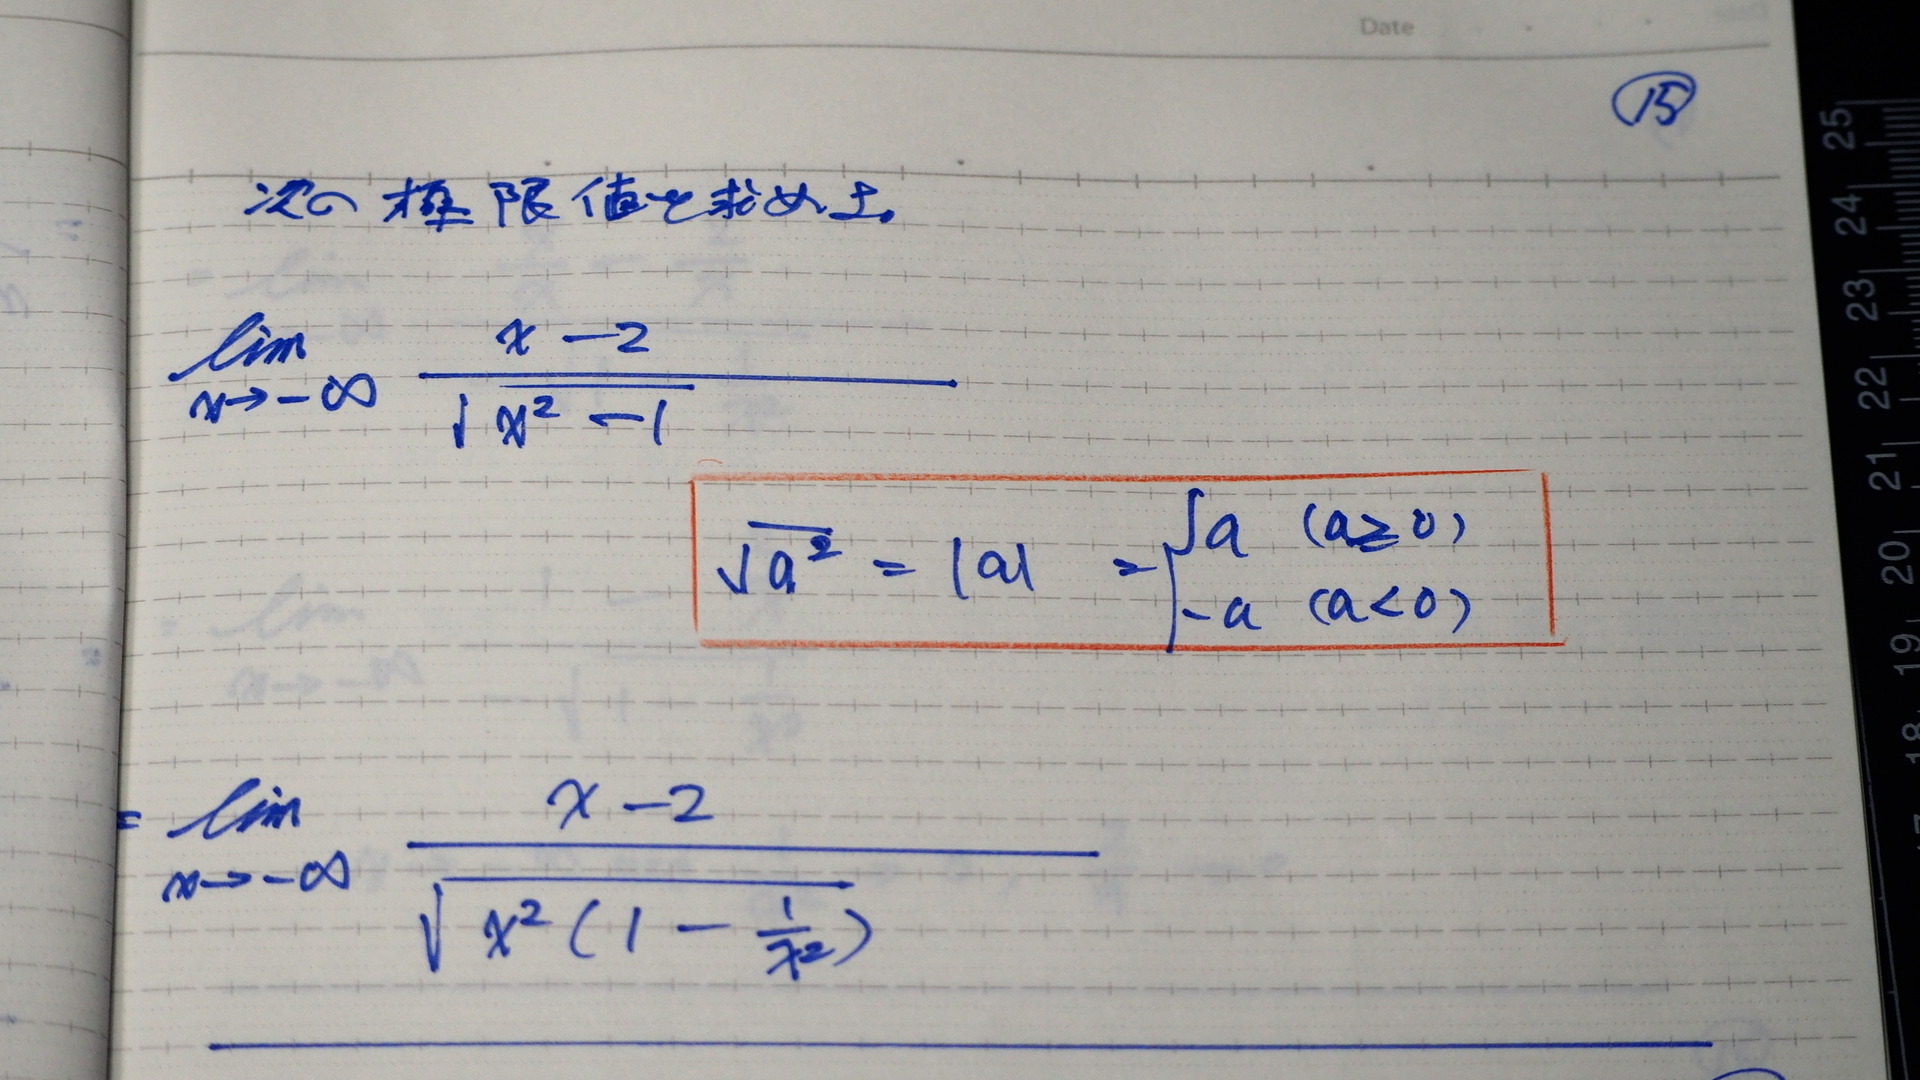 Date
⑮
次の極限値を求めよ。
lim x→-∞ (x-2)/√(x²-1)
√a² = |a| = { a (a≧0)
-a (a<0)
= lim x→-∞ (x-2)/√(x²(1-1/x²))
25
24
23
22
21
20
19
18
17